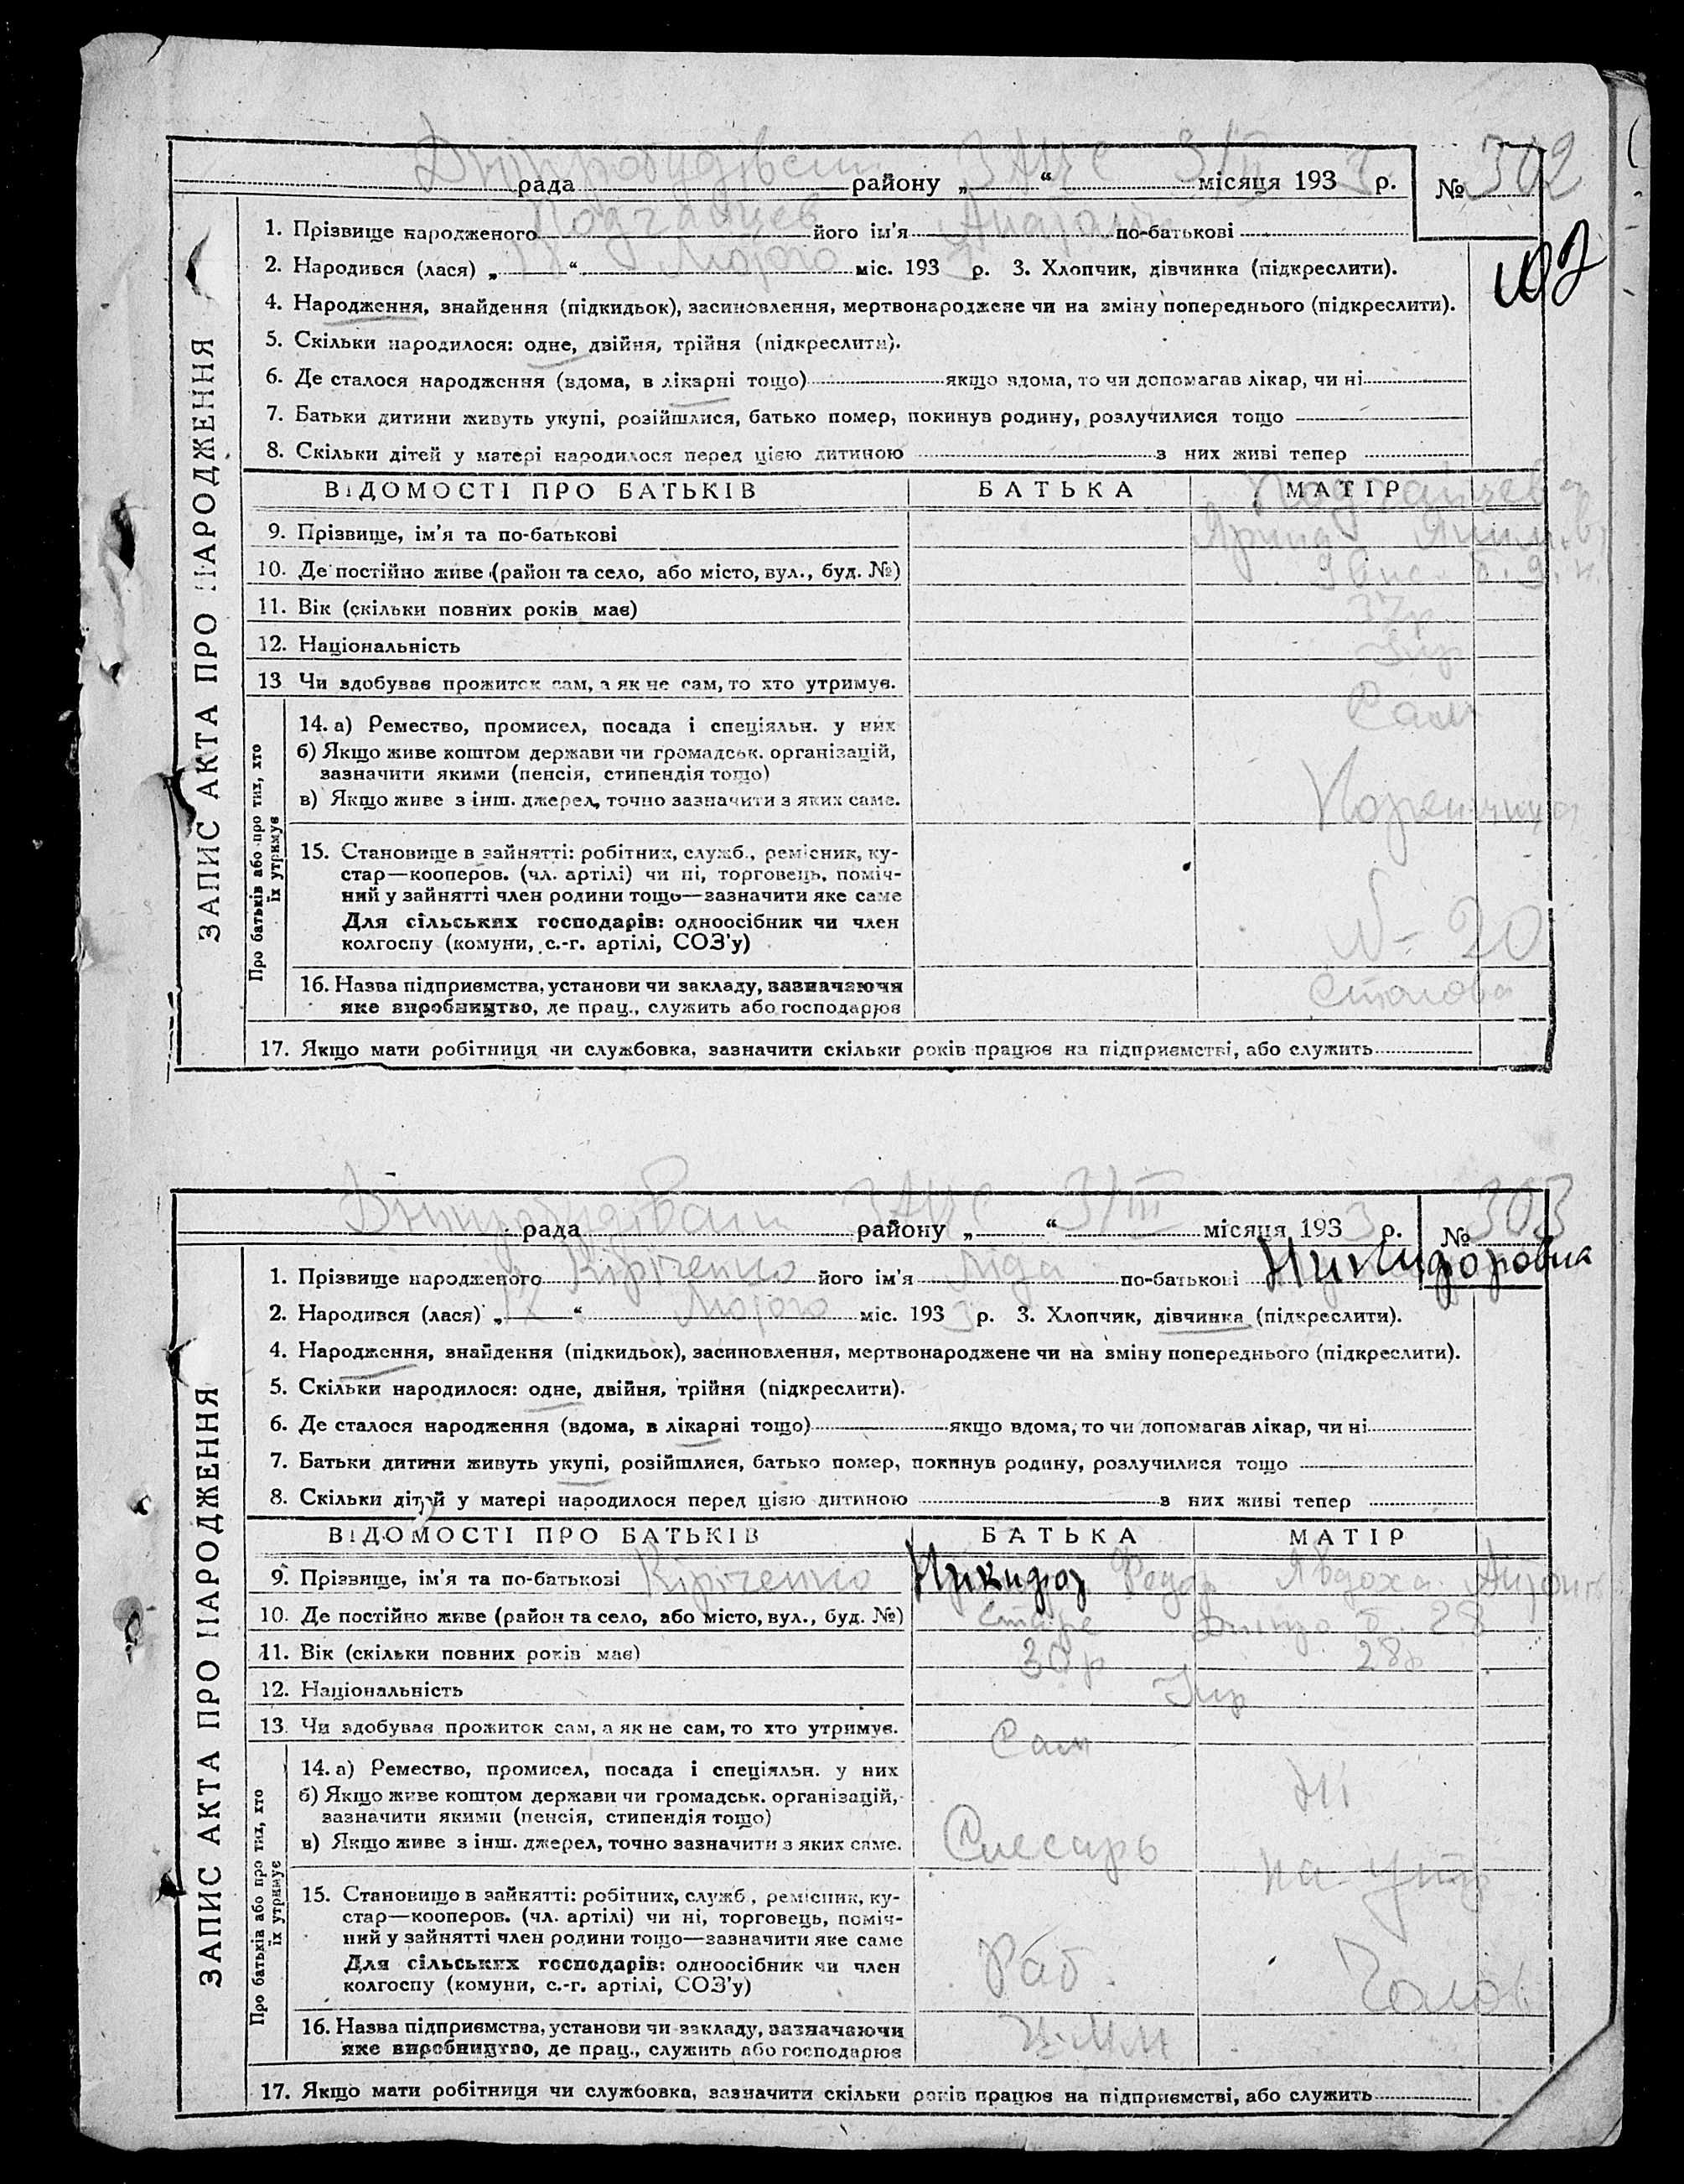 Дніпробудівськ ЗАЦС 3/III 3
рада району „ “ місяця 193 р. № 302
1. Прізвище народженого його ім'я по-батькові
2. Народився (лася) „ “ Лютого міс. 193 р. 3. Хлопчик, дівчинка (підкреслити).
102
4. Народження, знайдення (підкидьок), засиновлення, мертвонароджене чи на зміну попереднього (підкреслити).
5. Скільки народилося: одне, двійня, трійня (підкреслити).
6. Де сталося народження (вдома, в лікарні тощо) якщо вдома, то чи допомагав лікар, чи ні
7. Батьки дитини живуть укупі, розійшлися, батько помер, покинув родину, розлучилися тощо
8. Скільки дітей у матері народилося перед цією дитиною з них живі тепер
ВІДОМОСТІ ПРО БАТЬКІВ БАТЬКА МАТІР
9. Прізвище, ім'я та по-батькові
10. Де постійно живе (район та село, або місто, вул., буд. №)
11. Вік (скільки повних років має) 37р
12. Національність Укр
13 Чи здобуває прожиток сам, а як не сам, то хто утримує. Сам
14. а) Ремество, промисел, посада і спеціяльн. у них
б) Якщо живе коштом держави чи громадськ. організацій,
зазначити якими (пенсія, стипендія тощо)
в) Якщо живе з інш. джерел, точно зазначити з яких саме.
15. Становище в зайнятті: робітник, служб., ремісник, ку-
стар—кооперов. (чл. артілі) чи ні, торговець, поміч-
ний у зайнятті член родини тощо—зазначити яке саме
Для сільських господарів: одноосібник чи член
колгоспу (комуни, с.-г. артілі, СОЗ'у) № 20
16. Назва підприємства, установи чи закладу, зазначаючи Столова
яке виробництво, де прац., служить або господарює
17. Якщо мати робітниця чи службовка, зазначити скільки років працює на підприємстві, або служить
ЗАПИС АКТА ПРО НАРОДЖЕННЯ
Про батьків або про тих, хто
їх утримує
Дніпробудівськ ЗАЦС 3/III 3
рада району „ “ місяця 193 р. № 303
1. Прізвище народженого Кіріченко його ім'я Ліда по-батькові Никидоровна
2. Народився (лася) „ “ Лютого міс. 193 3 р. 3. Хлопчик, дівчинка (підкреслити).
4. Народження, знайдення (підкидьок), засиновлення, мертвонароджене чи на зміну попереднього (підкреслити).
5. Скільки народилося: одне, двійня, трійня (підкреслити).
6. Де сталося народження (вдома, в лікарні тощо) якщо вдома, то чи допомагав лікар, чи ні
7. Батьки дитини живуть укупі, розійшлися, батько помер, покинув родину, розлучилися тощо
8. Скільки дітей у матері народилося перед цією дитиною з них живі тепер
ВІДОМОСТІ ПРО БАТЬКІВ БАТЬКА МАТІР
9. Прізвище, ім'я та по-батькові Кіріченко Никидор Федор Явдоха
10. Де постійно живе (район та село, або місто, вул., буд. №) Старе б. 28
11. Вік (скільки повних років має) 30р 28р
12. Національність Укр
13. Чи здобуває прожиток сам, а як не сам, то хто утримує. Сам
14. а) Ремество, промисел, посада і спеціяльн. у них Ні
б) Якщо живе коштом держави чи громадськ. організацій,
зазначити якими (пенсія, стипендія тощо)
в) Якщо живе з інш. джерел, точно зазначити з яких саме. Слесарь на утр
15. Становище в зайнятті: робітник, служб., ремісник, ку-
стар—кооперов. (чл. артілі) чи ні, торговець, поміч-
ний у зайнятті член родини тощо—зазначити яке саме
Для сільських господарів: одноосібник чи член Раб. Чолов
колгоспу (комуни, с.-г. артілі, СОЗ'у)
16. Назва підприємства, установи чи закладу, зазначаючи
яке виробництво, де прац., служить або господарює
17. Якщо мати робітниця чи службовка, зазначити скільки років працює на підприємстві, або служить
ЗАПИС АКТА ПРО НАРОДЖЕННЯ
Про батьків або про тих, хто
їх утримує